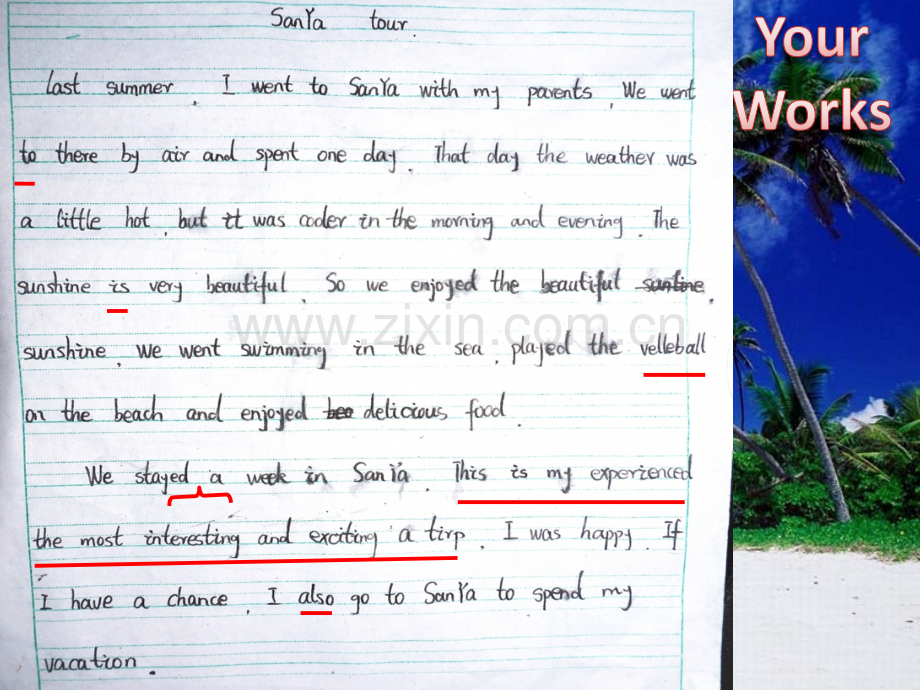 SanYa tour.
Your
Works
Last summer, I went to SanYa with my parents, We went
to there by air and spent one day. That day the weather was
a little hot, but it was cooler in the morning and evening. The
sunshine is very beautiful. So we enjoyed the beautiful sunline.
www.zixin.com.cn
sunshine, we went swimming in the sea, played the velleball
on the beach and enjoyed bea delicious food.
We stayed a week in SanYa. This is my experienced
the most interesting and exciting a tirp. I was happy. If
I have a chance, I also go to SanYa to spend my
vacation.